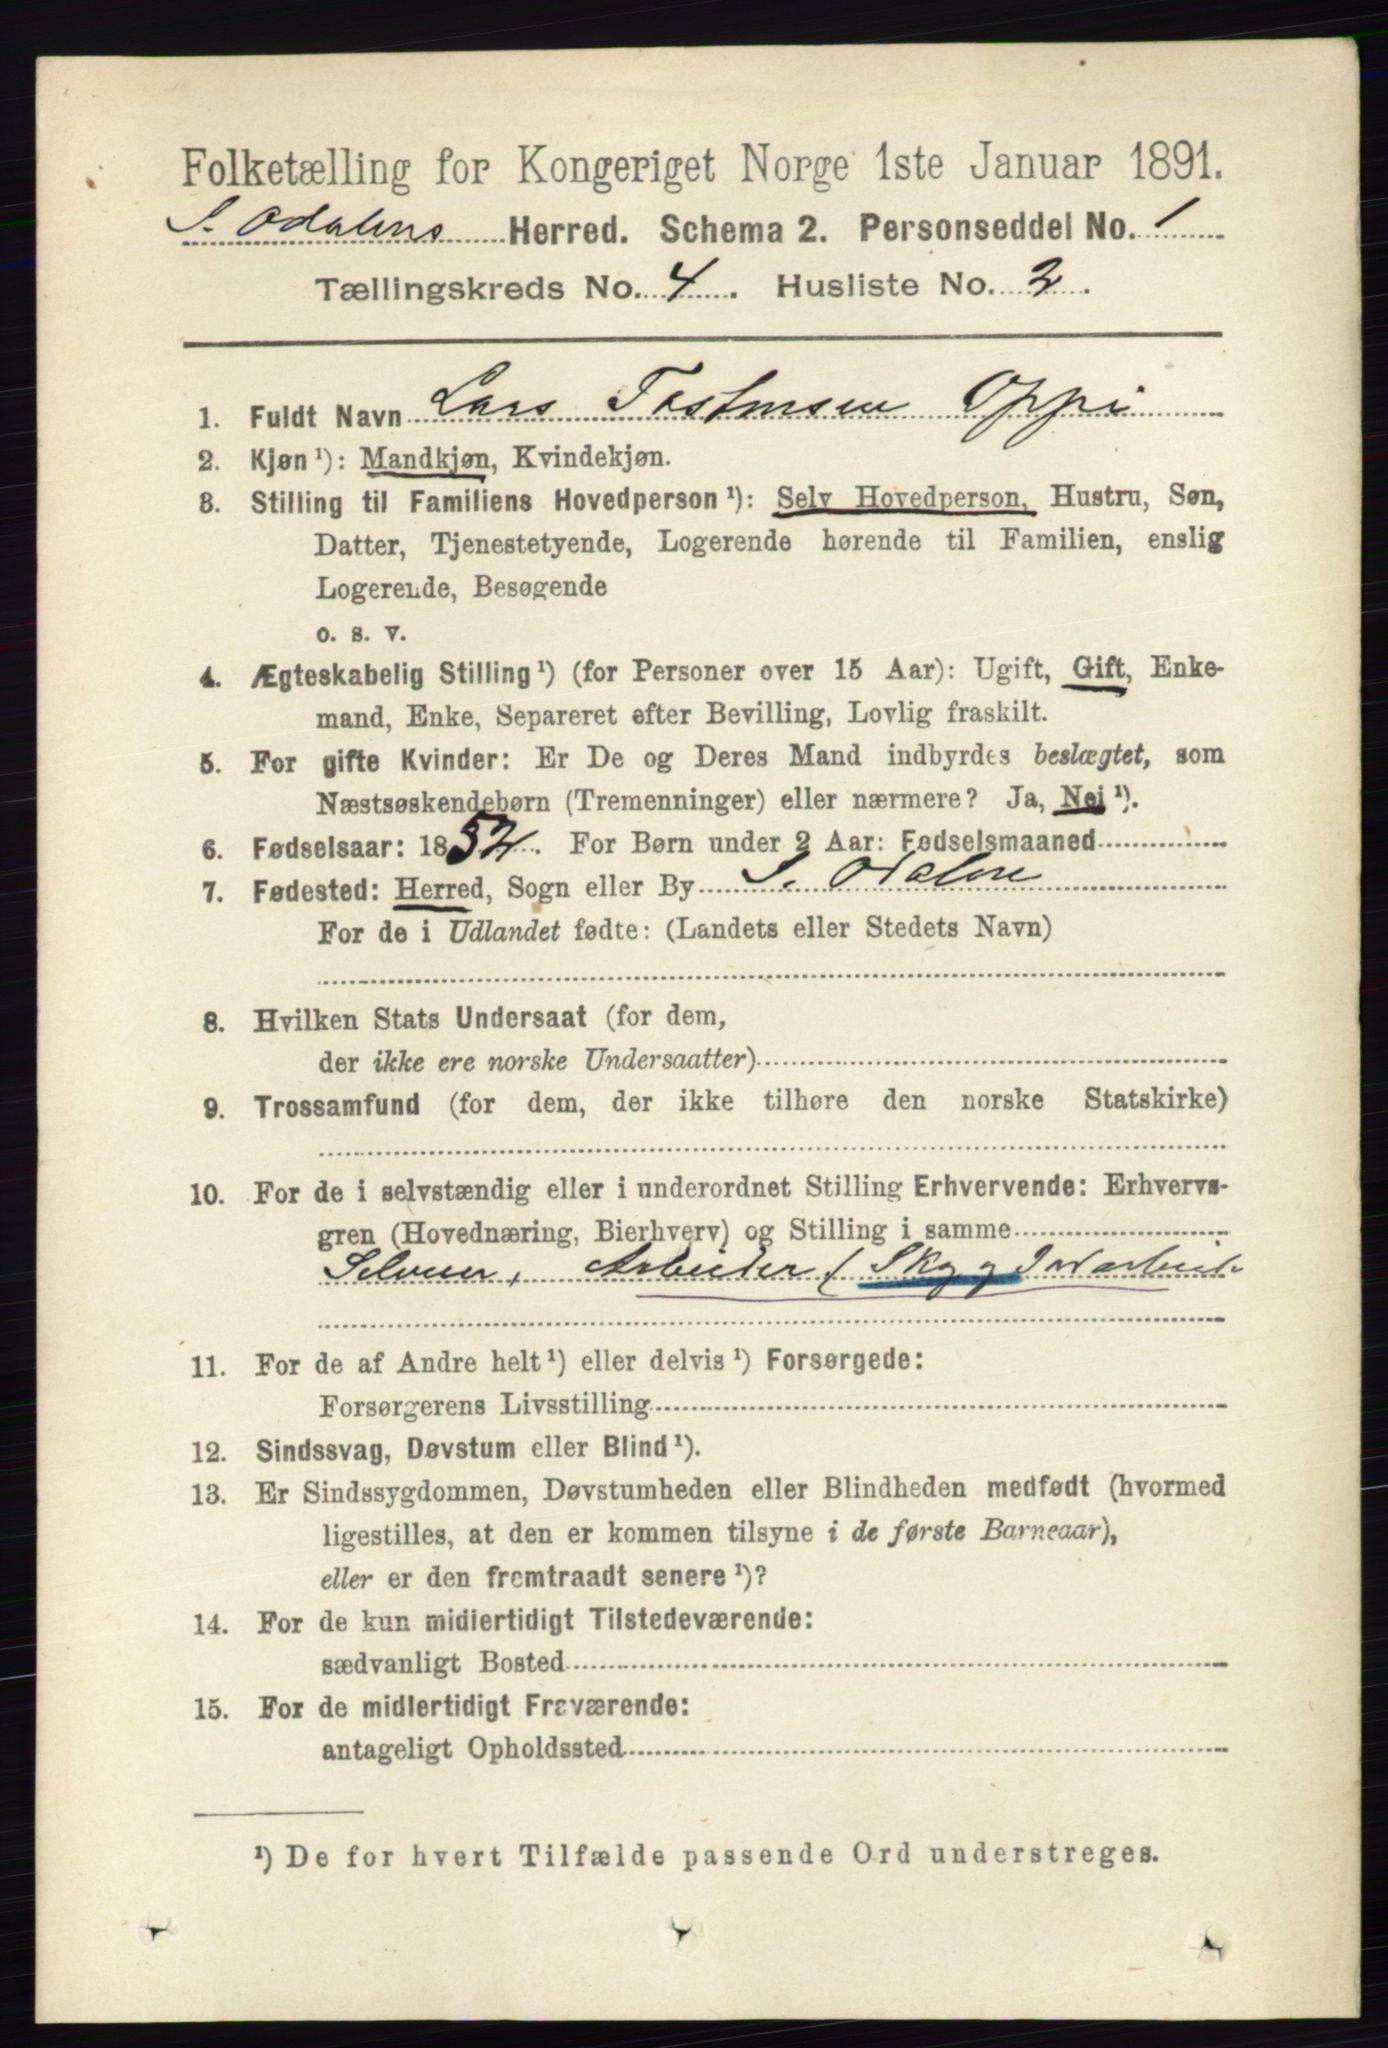 Folketælling for Kongeriget Norge 1ste Januar 1891.
S. Odalens Herred. Schema 2. Personseddel No. 1
Tællingskreds No. 4. Husliste No. 2.
1. Fuldt Navn Lars Oppi
2. Kjøn¹): Mandkjøn, Kvindekjøn.
3. Stilling til Familiens Hovedperson¹): Selv Hovedperson, Hustru, Søn,
Datter, Tjenestetyende, Logerende hørende til Familien, enslig
Logerende, Besøgende
o. s. v.
4. Ægteskabelig Stilling¹) (for Personer over 15 Aar): Ugift, Gift, Enke-
mand, Enke, Separeret efter Bevilling, Lovlig fraskilt.
5. For gifte Kvinder: Er De og Deres Mand indbyrdes beslægtet, som
Næstsøskendebørn (Tremenninger) eller nærmere? Ja, Nei¹).
6. Fødselsaar: 1852. For Børn under 2 Aar: Fødselsmaaned
7. Fødested: Herred, Sogn eller By S. Odalen
For de i Udlandet fødte: (Landets eller Stedets Navn)
8. Hvilken Stats Undersaat (for dem,
der ikke ere norske Undersaatter)
9. Trossamfund (for dem, der ikke tilhøre den norske Statskirke)
10. For de i selvstændig eller i underordnet Stilling Erhvervende: Erhvervs-
gren (Hovednæring, Bierhverv) og Stilling i samme
Selveier, Arbeider (Skog og Jordarbeid
11. For de af Andre helt¹) eller delvis¹) Forsørgede:
Forsørgerens Livsstilling
12. Sindssvag, Døvstum eller Blind¹).
13. Er Sindssygdommen, Døvstumheden eller Blindheden medfødt (hvormed
ligestilles, at den er kommen tilsyne i de første Barneaar),
eller er den fremtraadt senere¹)?
14. For de kun midlertidigt Tilstedeværende:
sædvanligt Bosted
15. For de midlertidigt Fraværende:
antageligt Opholdssted
¹) De for hvert Tilfælde passende Ord understreges.